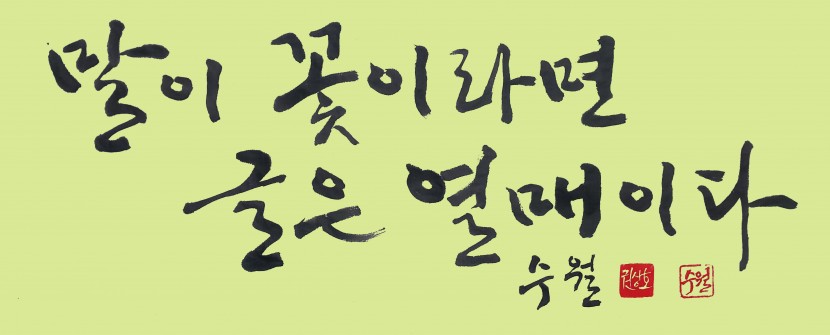 말이 꽃이라면
글은 열매이다
수월 권상호 수월